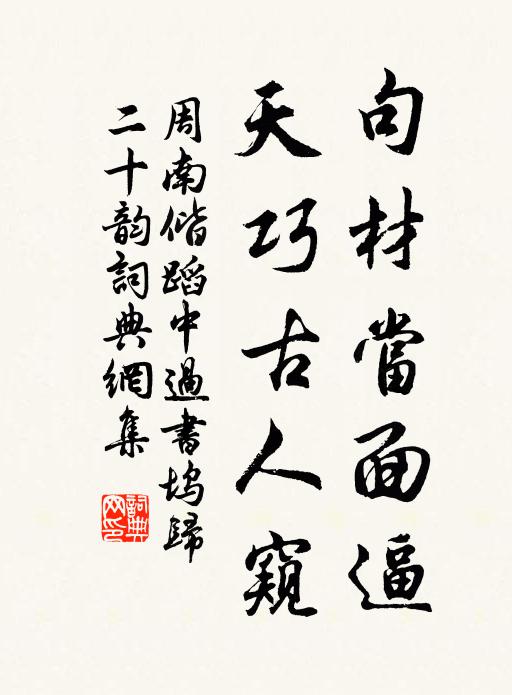 句材當面逼
天巧古人窺
周南偕蹈中過書塢歸
二十韵詞典網集
詞典网印